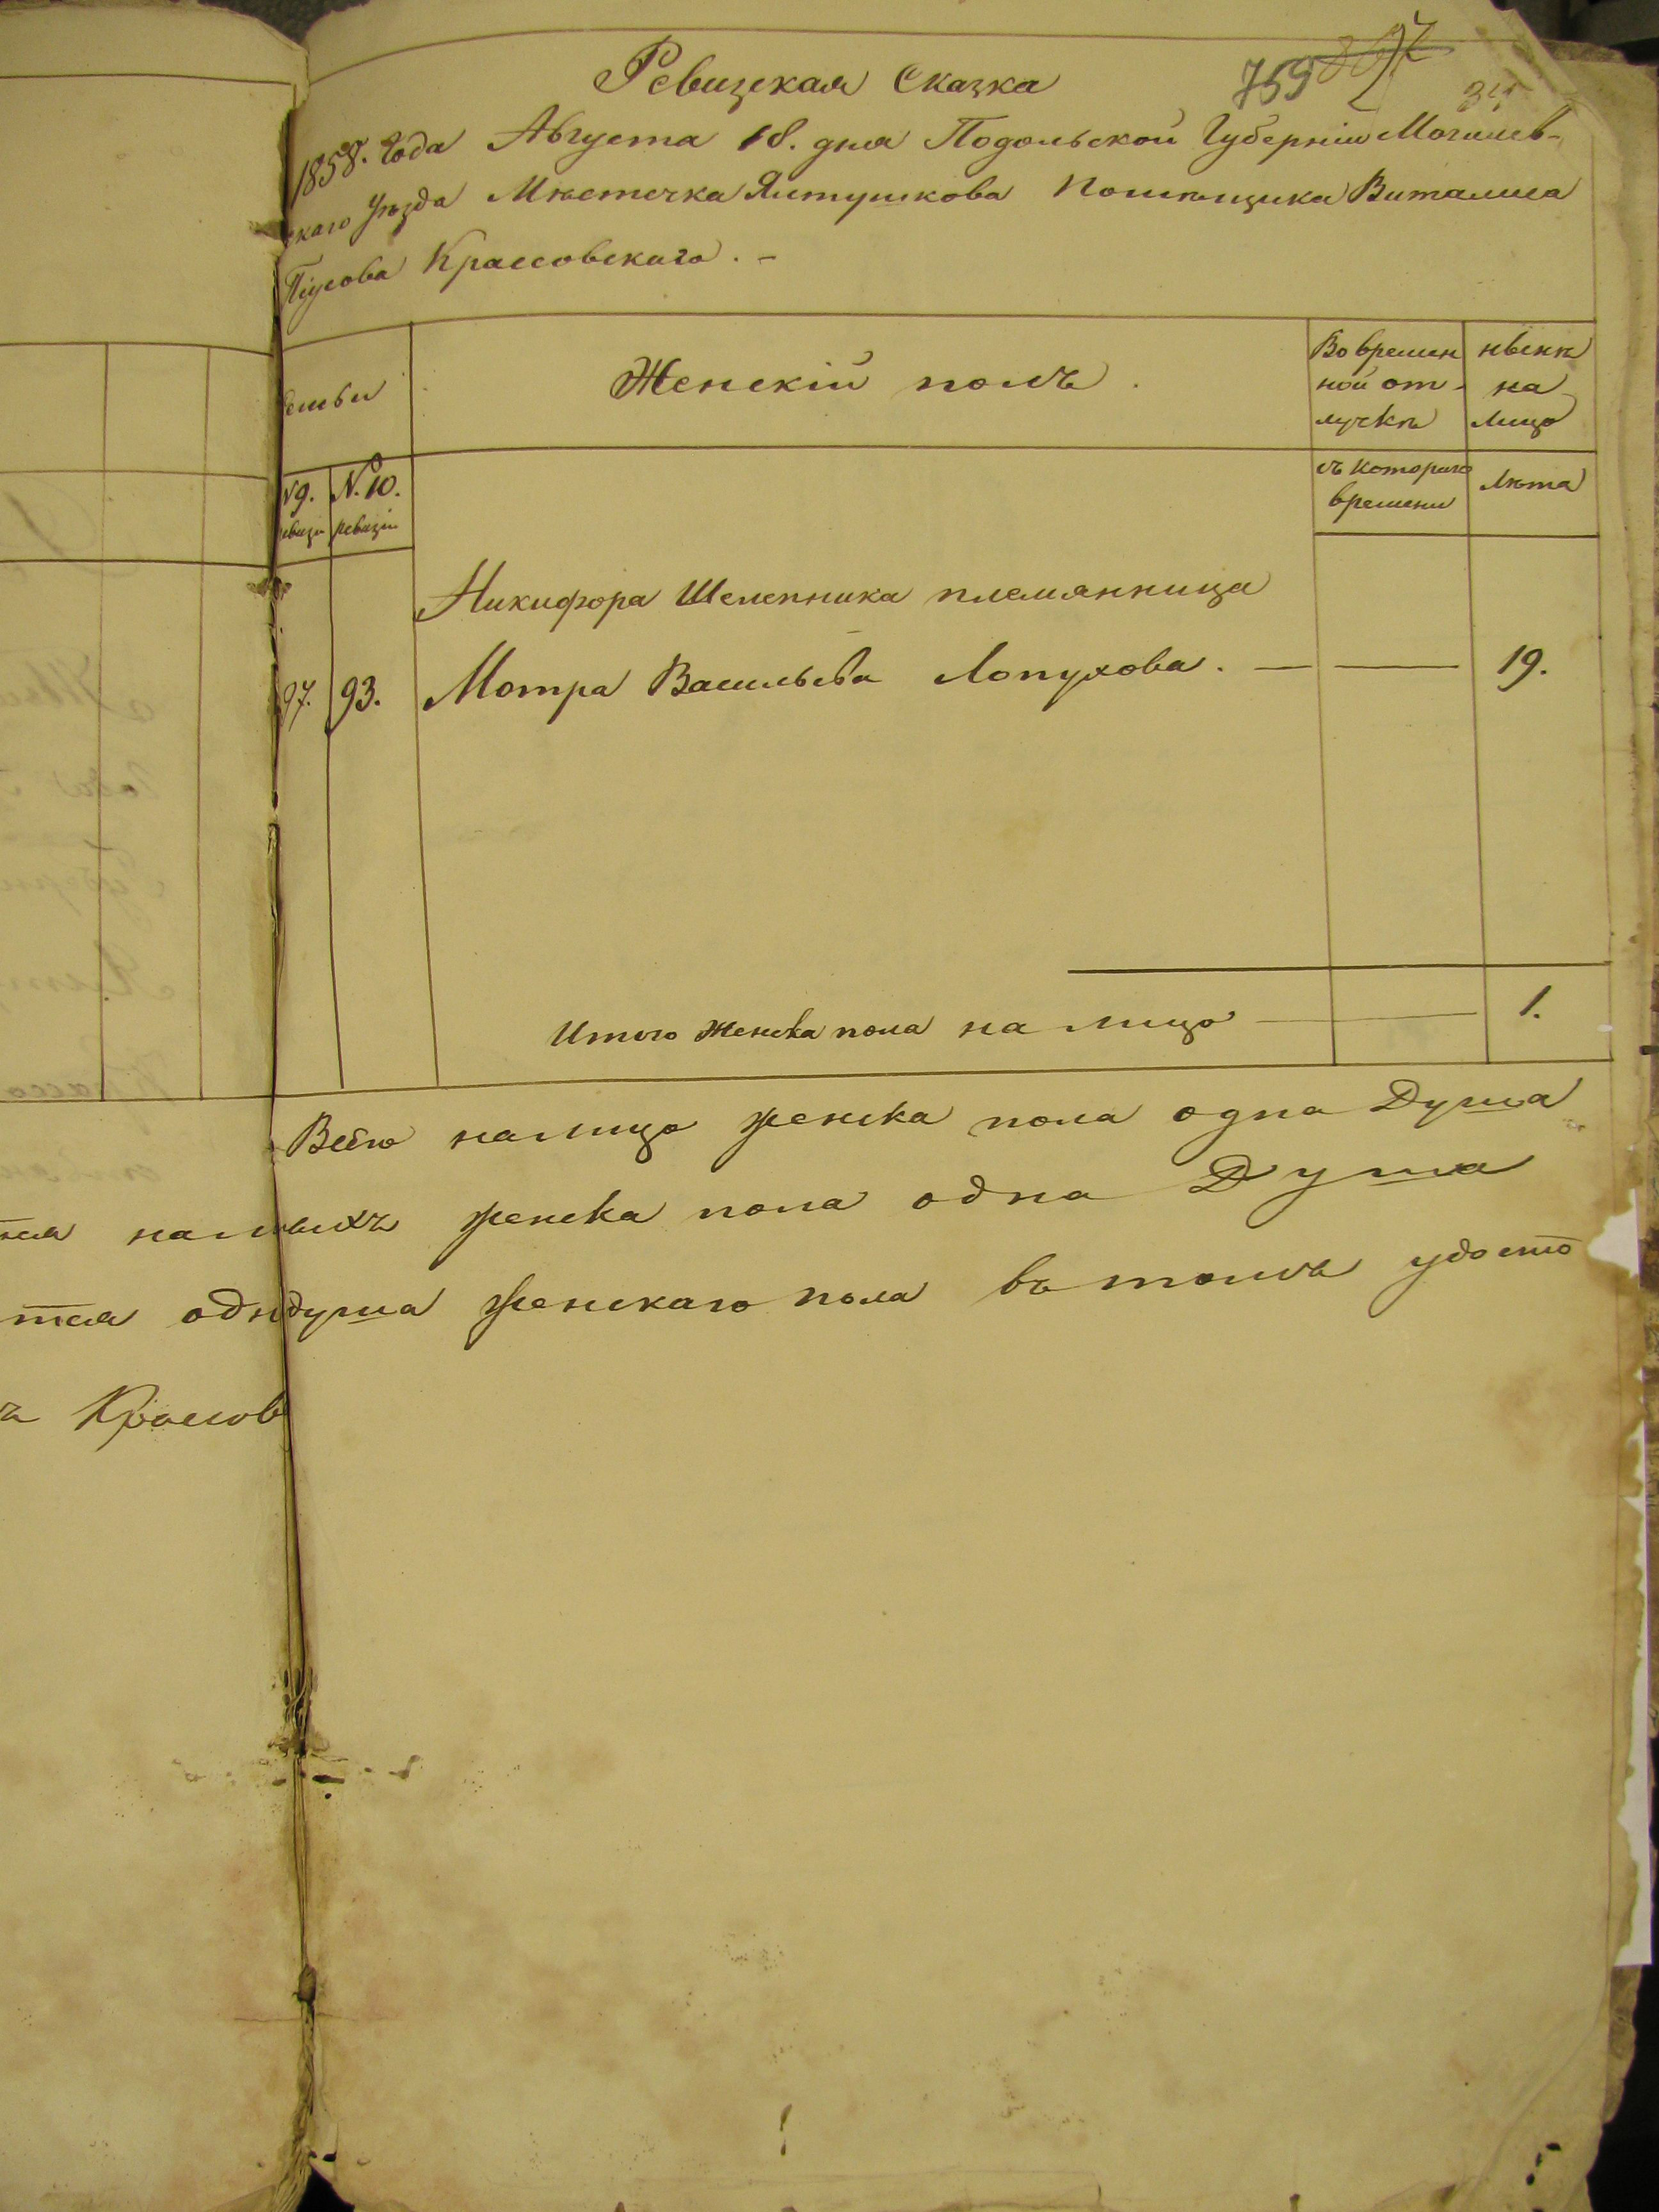 759
34
Ревизская Сказка
1858. Года Августа 18. дня Подольской Губерніи Могилев-
скаго Уѣзда Мѣстечка Ялтушкова Помѣщика Виталиса
Піусова Крассовскаго. -
семьи
Женскій полъ.
Во времен
ной от-
лучкѣ
нынѣ
на
лицо
N9. ревизіи
N.10. ревизіи
съ котораго
времени
Лѣта
Никифора Шелепника племянница
97. 93. Мотра Васильева Лопухова. — — 19.
Итого женска пола на лицо — — 1.
Всего налицо женска пола одна Душа
женска пола одна Душа
тся одндуша женскаго пола въ томъ удосто
Красов